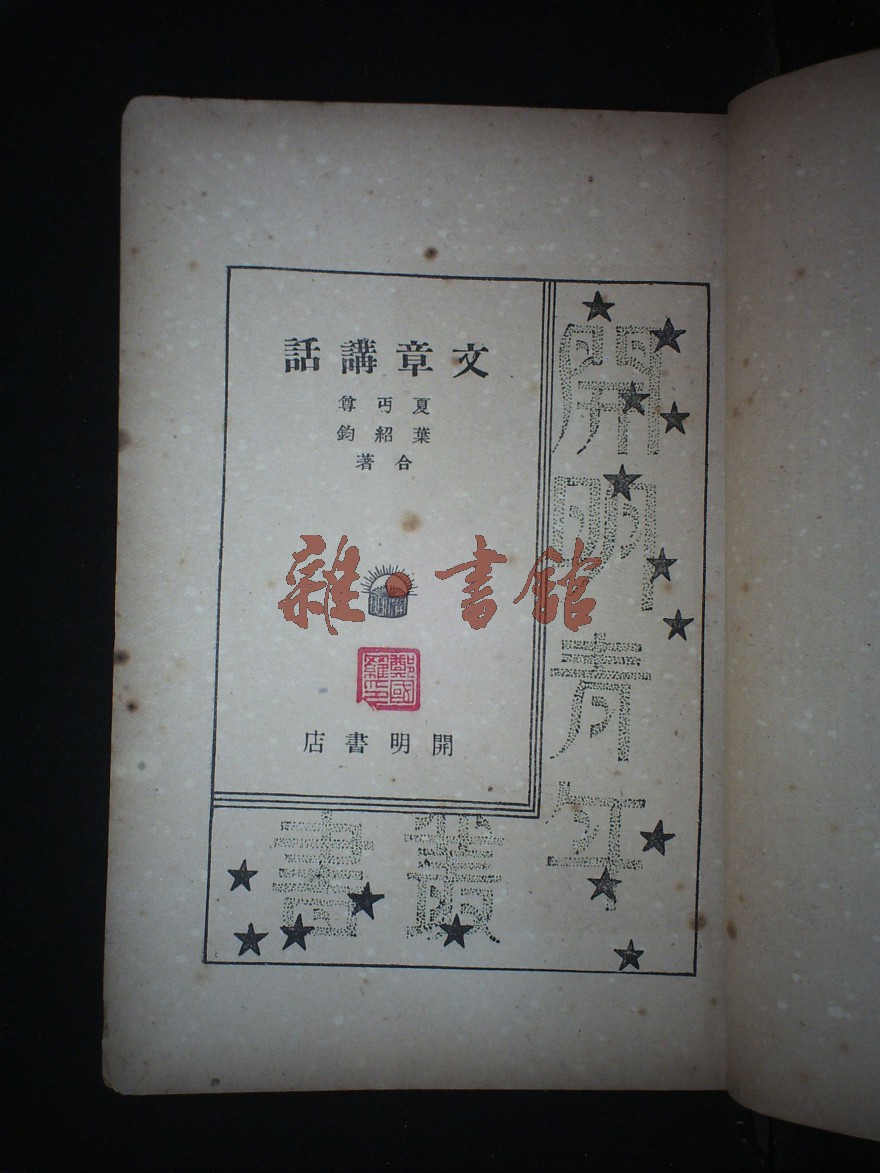 文章講話
夏丏尊
葉紹鈞
合著
雜書館
鄭國
羅印
開明書店
開明青年
叢書